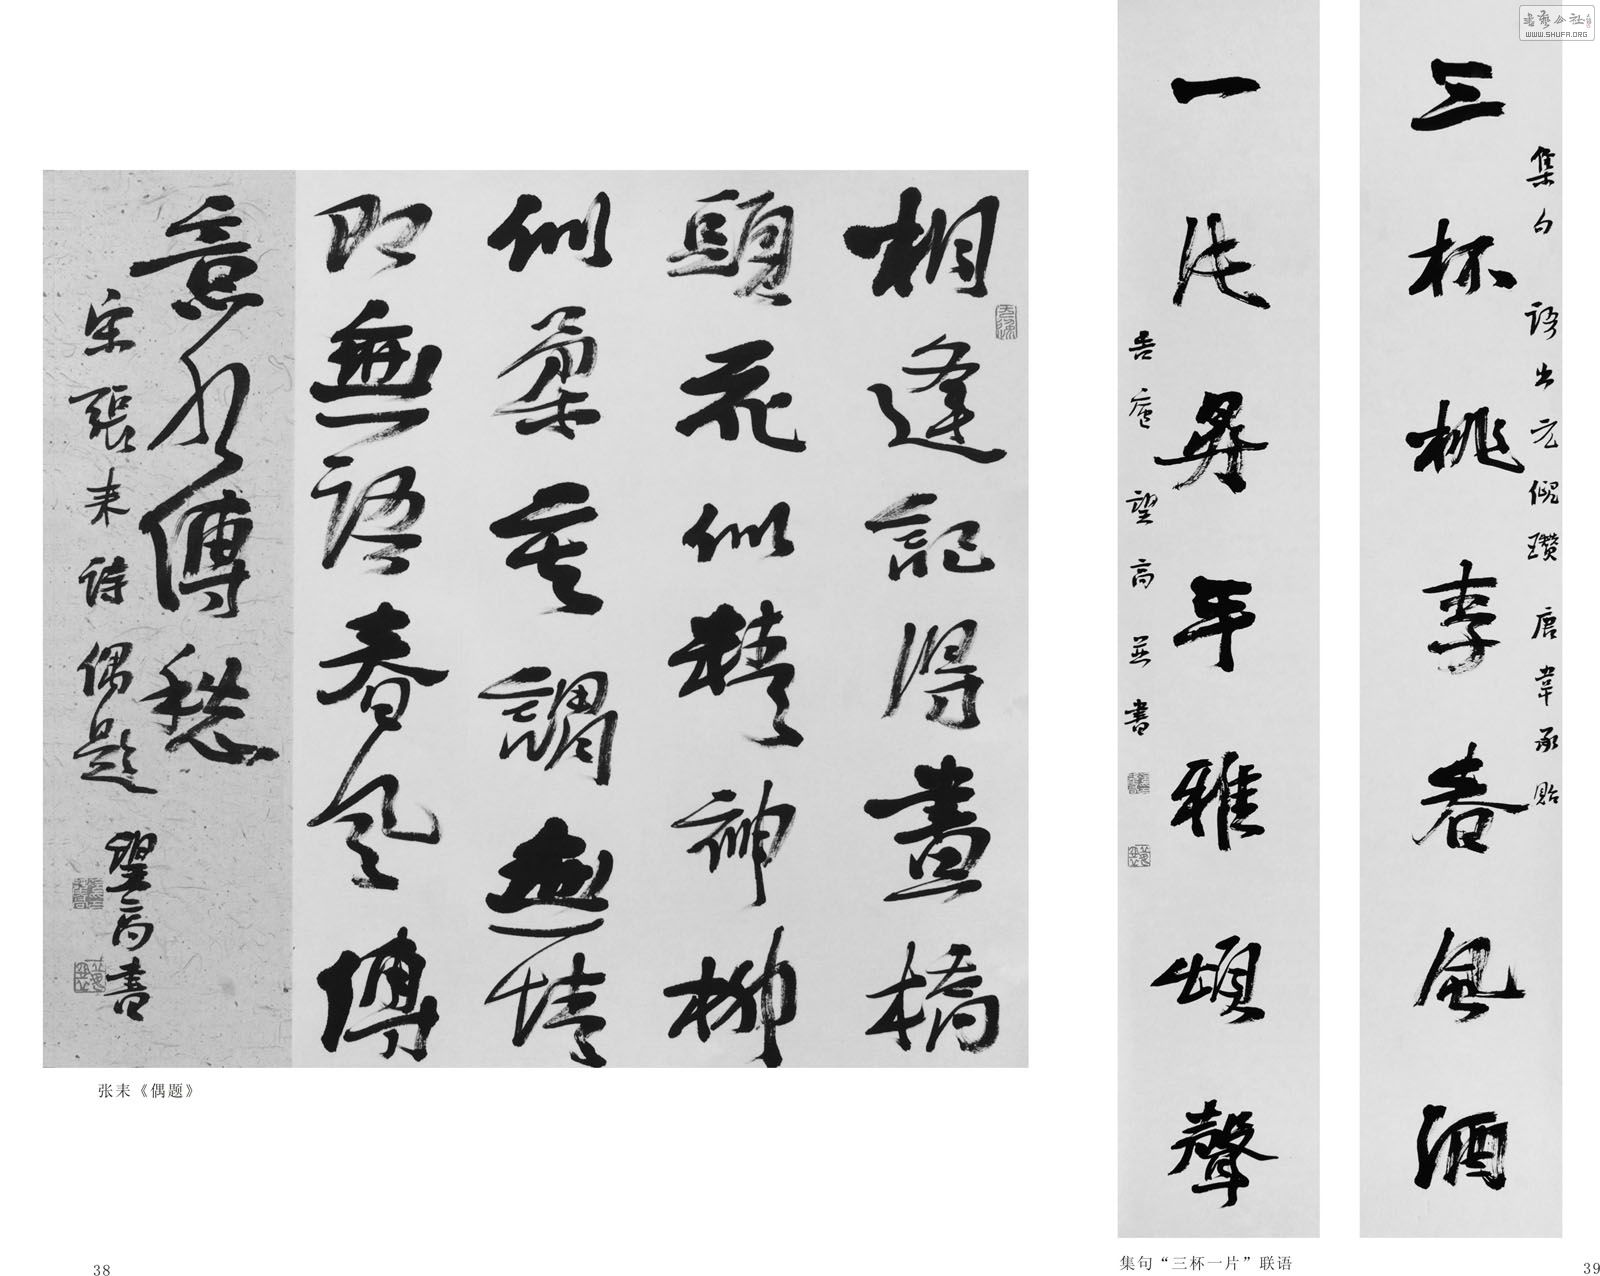 相逢記得畫橋
頭花似精神柳
似柔莫謂無情
即無語春風傳
意水傳愁
宋張耒詩偶題 望高書
张耒《偶题》
38
三杯桃李春風酒
集句 語出元倪瓚 唐韋承貽
一片昇平雅頌聲
望高並書
集句“三杯一片”联语
39
書藝公社
WWW.SHUFA.ORG